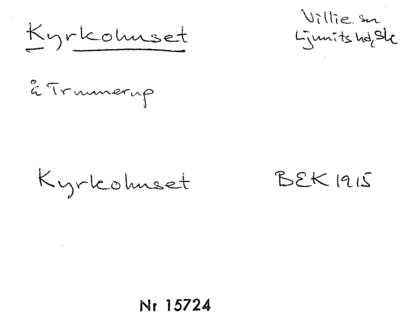 Kyrkohuset
Villie sn
Ljunits hd, Sk
å Trunnerup
Kyrkohuset
BEK 1915
Nr 15724